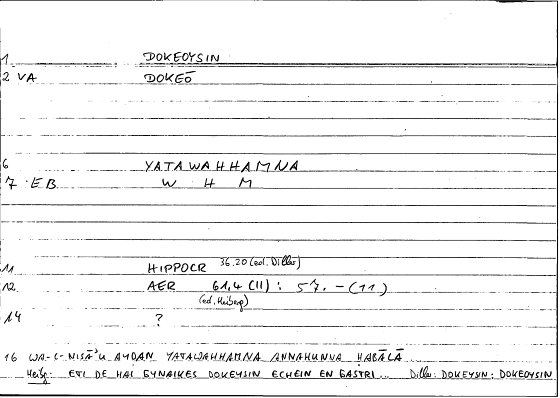 1 DOKEOYSIN
2 VA DOKEŌ
6 YATAWAHHAMNA
7 E.B. W H M
11 HIPPOCR 36.20 (ed. Diller)
12 AER 61,4 (11) : 57. - (11)
(ed. Heiberg)
14 ?
16 WA-L-NISĀ'U AYDAN YATAWAHHAMNA ANNAHUNNA ḤABĀLĀ
Heibg: ETI DE HAI GYNAIKES DOKEYSIN ECHEIN EN GASTRI... Diller: DOKEYSIN: DOKEOYSIN